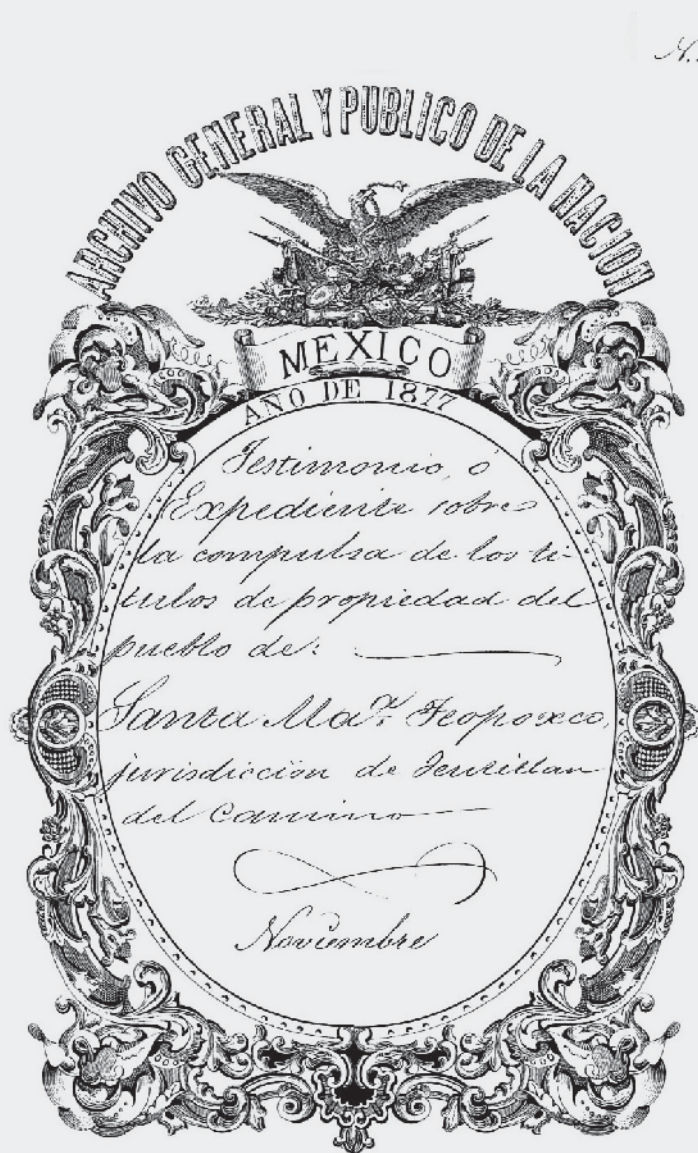 ARCHIVO GENERAL Y PUBLICO DE LA NACION
MEXICO
AÑO DE 1877
Testimonio, ó
Expediente sobre
la compulsa de los ti-
tulos de propiedad del
pueblo de:
Santa Ma. Teopoxco,
jurisdiccion de Teutitlan
del Camino
Noviembre